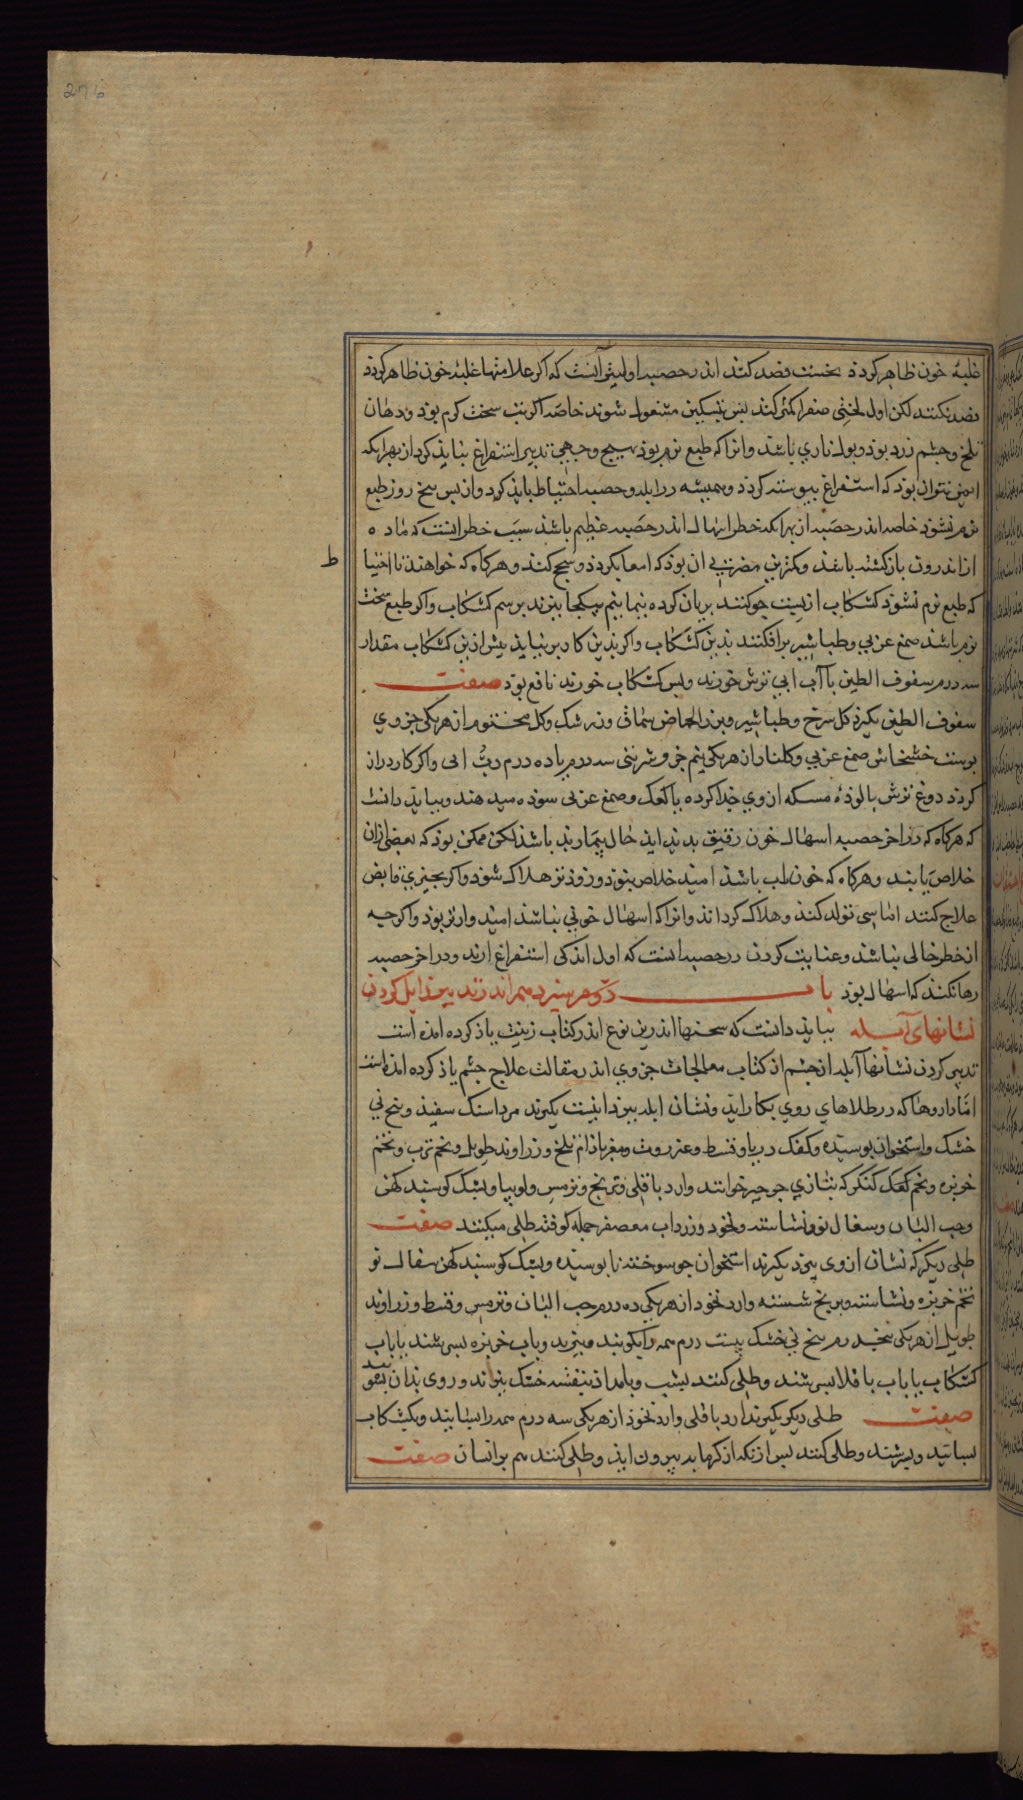 276
غلبهٔ خون ظاهر کردد نخست فصد کنند اندر حصبه اولیتر آنست که اکر علامتها غلبهٔ خون ظاهر کردد
فصد نکنند لکن اول لختی صفرا کمتر کنند بس بتسکین مشغول شوند خاصه اکر تب سخت کرم بود و دهان
تلخ و چشم زرد بود و بول ناری باشد و انرا که طبع نرم بود بهیچ وجهی تدبیر استفراغ نباید کرد از بهر انکه
ایمن نتوان بود که استفراغ بیوسته کردد و همیشه در ابله و حصبه احتیاط باید کرد و از بس پنج روز طبع
نرم نشود خاصه اندر حصبه از بهر انکه خطر اسهال اندر حصبه عظیم باشد سبب خطر انست که ماده
از اندرون باز کشته باشد و کمترین مضرتی ان بود که امعا بکردد و سحج کند و هرکاه که خواهند تا احتیا
ط
که طبع نرم نشود کشکاب از پست جو کنند بریان کرده نیما نیم بیکجا ببزند برسم کشکاب و اکر طبع سخت
نرم باشد صمغ عربی و طباشیر برافکنند بدین کشکاب و اکر بدین کار برنیاید بیش ازین کشکاب مقدار
سه درم سفوف الطین با آب ابی ترش خورند و بس کشکاب خورند نافع بود صفت
سفوف الطین بکیرند کل سرخ و طباشیر و بزر الحماض سماق و زرشک و کل مختوم از هر یکی جزوی
بوست خشخاش صمغ عربی و کلنار از هر یکی نیم جزو شربتی سه درم با ده درم رب ابی و اکر کار دراز
کردد دوغ ترش بالوده مسکه از وی جدا کرده با کعک و صمغ عربی سوده میدهند و بباید دانست
که هرکاه که در اخر حصبه اسهال خون رقیق بدید اید حال بیمار بد باشد لکن ممکن بود که بعضی ازان
خلاص یابند و هرکاه که خون لب باشد امید خلاص نبود و زودتر هلاک شود و اکر بچیزی قابض
علاج کنند اماسی تولد کند و هلاک کرداند و انرا که اسهال خونی نباشد امیدوارتر بود و اکر چه
از خطر خالی نباشد و عنایت کردن در حصبه انست که اول اندکی استفراغ ارند و در اخر حصبه
رها نکنند که اسهال بود باب دوم سیزدهم اندر تدبیر زایل کردن
نشانهای آبله بباید دانست که سخنها اندرین نوع اندر کتاب زینت یاذ کرده امده است
تدبیر کردن نشانها آبله از چشم از کتاب معالجات جزوی اندر مقالت علاج چشم یاذ کرده امده است
اما داروها که در طلاهای روی بکار اید و نشان ابله ببرد اینست بکیرند مرداسنک سفید و بیخ نی
خشک و استخوان بوسیده و کفک دریا و قسط و عنزروت و مغز باذام تلخ و زراوند طویل و تخم ترب و تخم
خربزه و تخم کعک کنکر که بتازی جرجیر خوانند و ارد باقلی و برنج و ترمس و لوبیا و پشک کوسپند کهن
و حب البان و سفال نو و نشاسته و نخود و زرداب معصفر جمله کوفته طلی میکنند صفت
طلی دیکر که نشان از وی ببرد بکیرند استخوان جو سوخته تا بوسیده و پشک کوسپند کهن سفال نو
تخم خربزه و نشاسته و برنج شسته و ارد نخود از هر یکی ده درم حب البان و ترمس و قسط و زراوند
طویل از هر یکی پنج درم بیخ نی خشک بیست درم همه را بکوبند و ببزند و باب خربزه بسرشند یا باب
کشکاب یا باب باقلا بسرشند و طلی کنند بشب و بامداذ بنفشه خشک ببزاند و روی بذان بشویند
صفت طلی دیکر بکیرند ارد باقلی و ارد نخوذ از هر یکی سه درم همه را بسایند و بکشکاب
بسایند و بسرشند و طلی کنند بس از انکه از کرمابه بیرون اید و طلی کنند هم بر انسان صفت